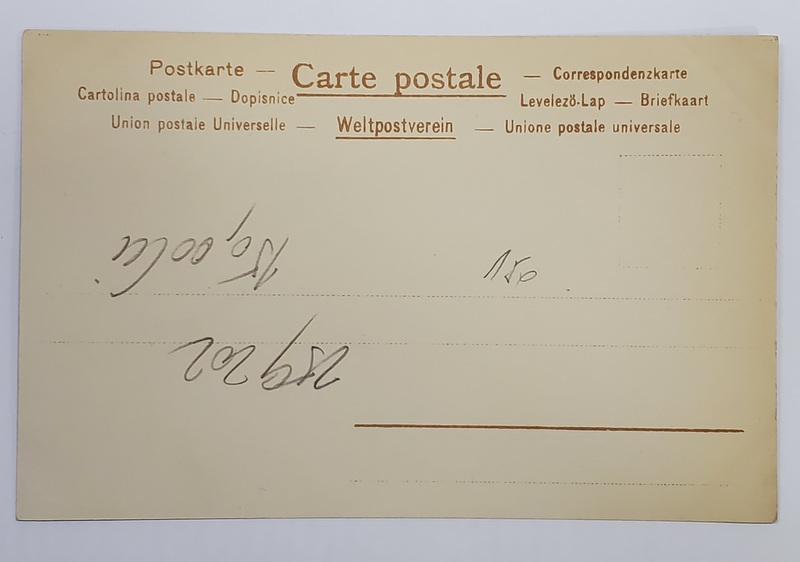 Postkarte — Carte postale — Correspondenzkarte
Cartolina postale — Dopisnice Levelező-Lap — Briefkaart
Union postale Universelle — Weltpostverein — Unione postale universale
150,00 lei
150
259202